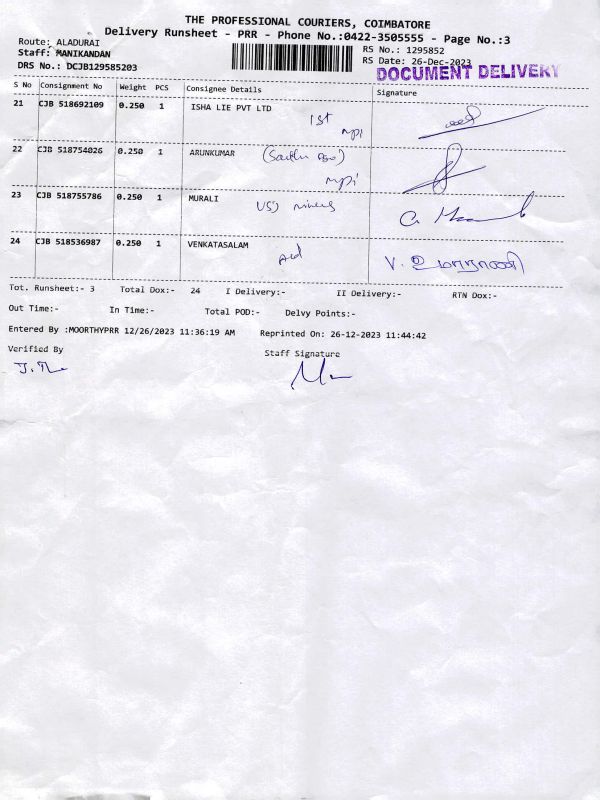 THE PROFESSIONAL COURIERS, COIMBATORE
Delivery Runsheet - PRR - Phone No.:0422-3505555 - Page No.:3
Route: ALADURAI
RS No.: 1295852
Staff: MANIKANDAN
RS Date: 26-Dec-2023
DRS No.: DCJB129585203
DOCUMENT DELIVERY
S No Consignment No Weight PCS Consignee Details Signature
21 CJB 518692109 0.250 1 ISHA LIE PVT LTD
1st
22 CJB 518754026 0.250 1 ARUNKUMAR
23 CJB 518755786 0.250 1 MURALI
24 CJB 518536987 0.250 1 VENKATASALAM
Tot. Runsheet:- 3 Total Dox:- 24 I Delivery:- II Delivery:- RTN Dox:-
Out Time:- In Time:- Total POD:- Delvy Points:-
Entered By :MOORTHYPRR 12/26/2023 11:36:19 AM Reprinted On: 26-12-2023 11:44:42
Verified By
Staff Signature